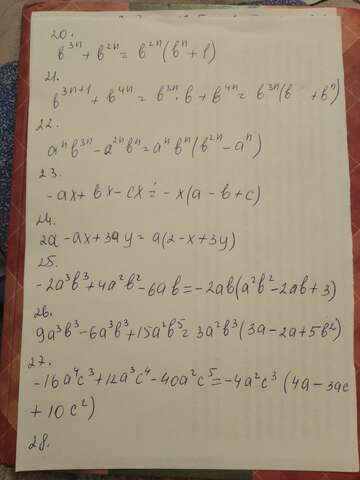 20.
в³ⁿ + в²ⁿ = в²ⁿ(вⁿ + 1)
21.
в³ⁿ⁺¹ + в⁴ⁿ = в³ⁿ · в + в⁴ⁿ = в³ⁿ(в + вⁿ)
22.
aⁿв³ⁿ - a²ⁿвⁿ = aⁿвⁿ(в²ⁿ - aⁿ)
23.
-ax + вx - cx = -x(a - в + c)
24.
2a - ax + 3ay = a(2 - x + 3y)
25.
-2a³в³ + 4a²в² - 6aв = -2aв(a²в² - 2aв + 3)
26.
9a³в³ - 6a³в³ + 15a²в⁵ = 3a²в³(3a - 2a + 5в²)
27.
-16a⁴c³ + 12a³c⁴ - 40a²c⁵ = -4a²c³(4a - 3ac
+ 10c²)
28.